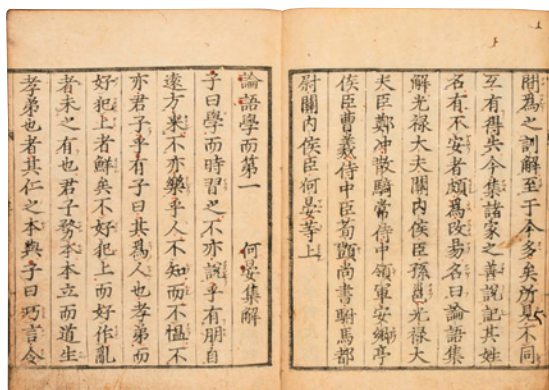 間為之訓解至于今多矣所見不同
互有得失今集諸家之善說記其姓
名有不安者頗為改易名曰論語集
解光禄大夫關內侯臣孫邕光禄大
夫臣鄭冲散騎常侍中領軍安鄉亭
侯臣曹羲侍中臣荀顗尚書駙馬都
尉關內侯臣何晏等上
論語學而第一 何晏集解
子曰學而時習之不亦說乎有朋自
遠方来不亦樂乎人不知而不慍不
亦君子乎有子曰其為人也孝弟而
好犯上者鮮矣不好犯上而好作亂
者未之有也君子務本本立而道生
孝弟也者其仁之本與子曰巧言令